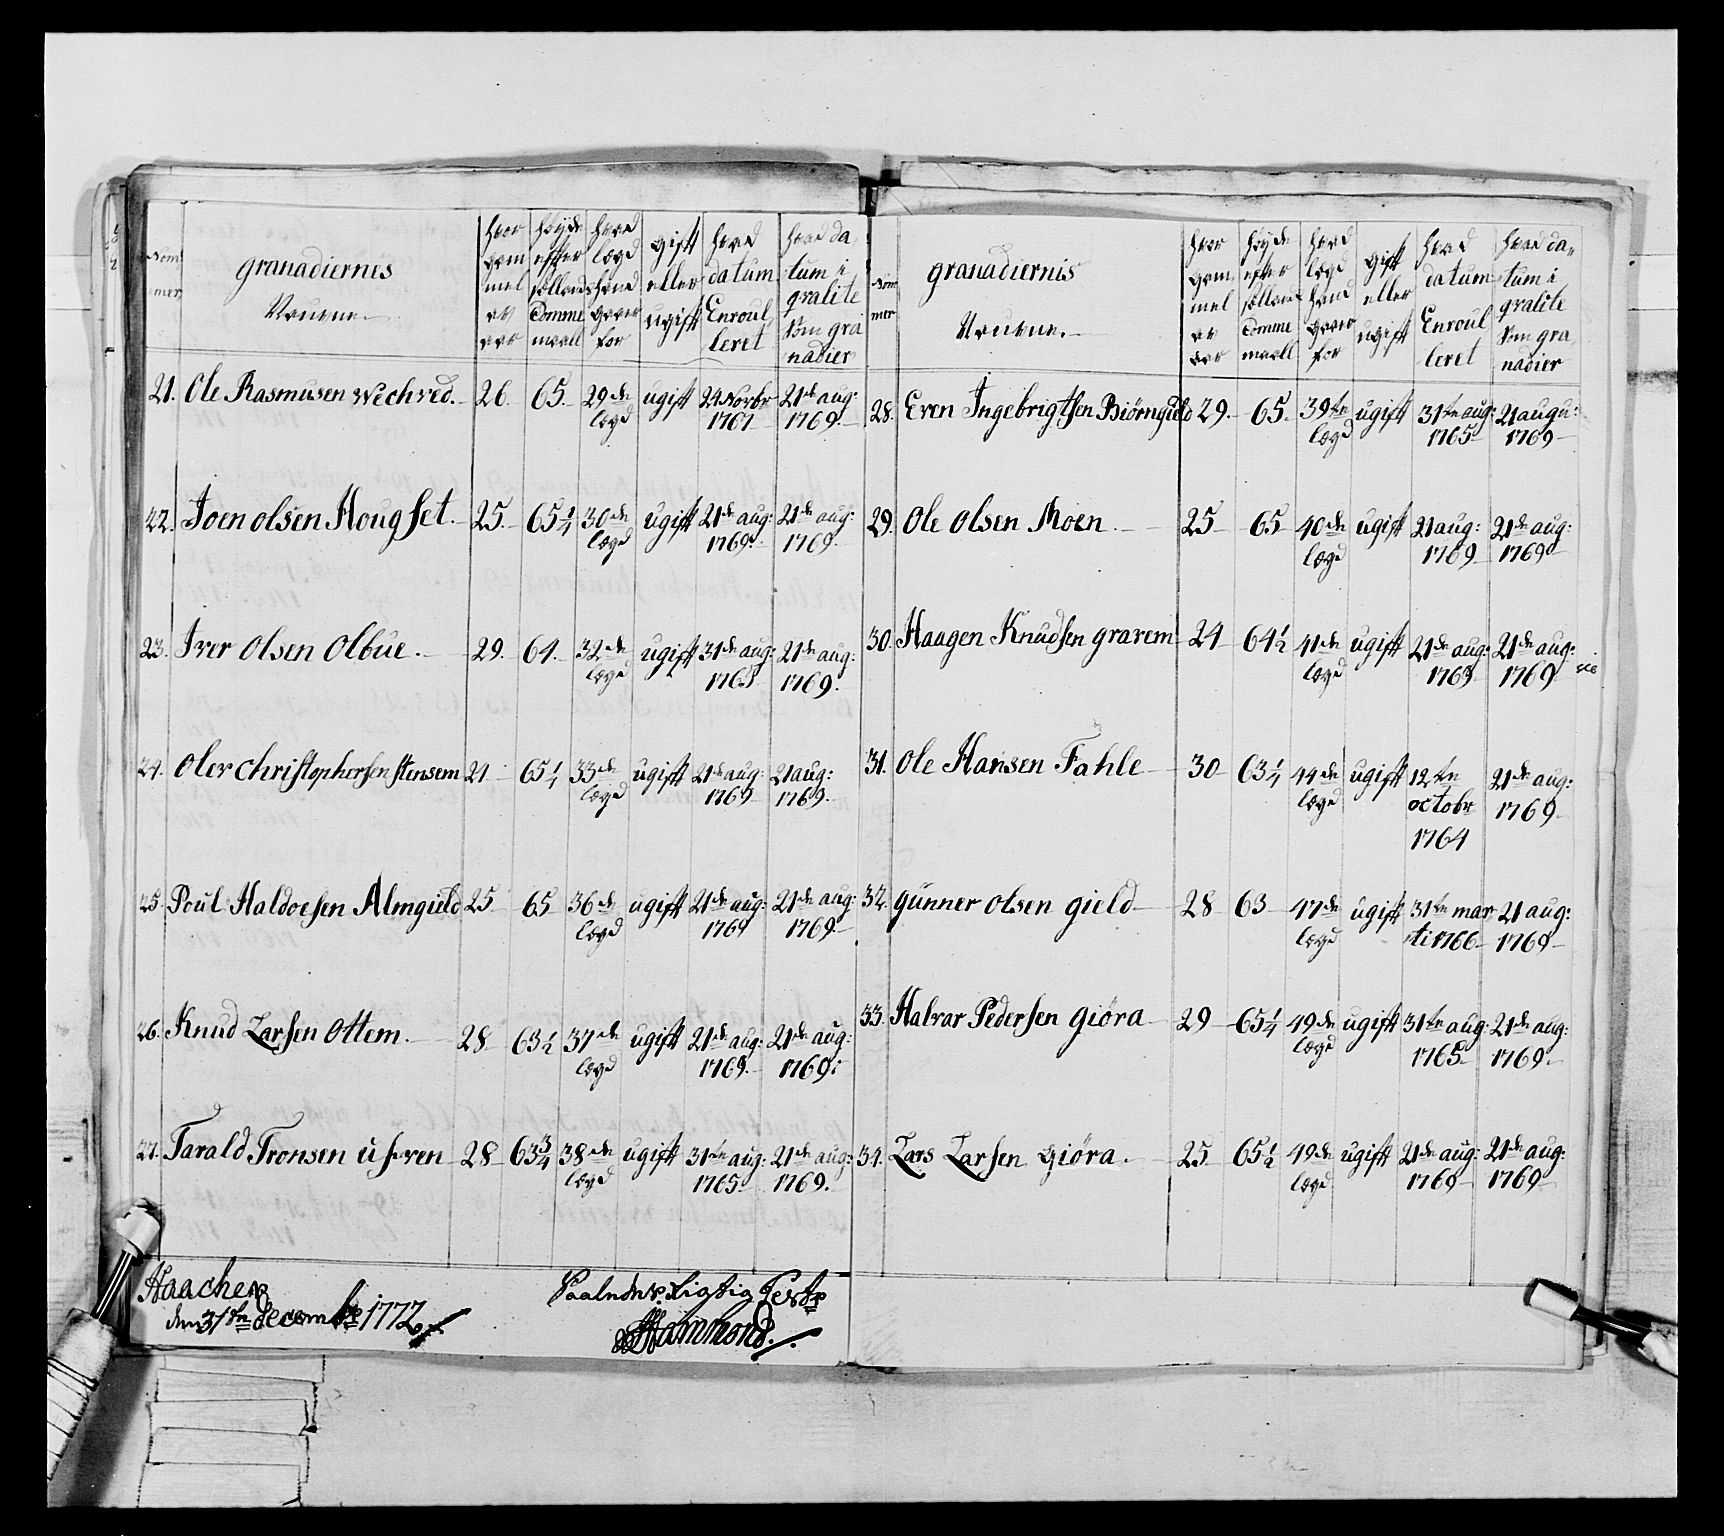 Nom mer
granadiernes
Nafne
hvor gammel er aar
höyde efter sollands Comme maall
hvad lægd hand giver for
gift eller ugift
hvad datum Enroulleret
hvad datum i qvalite Som granadier
21. Ole Rasmusen Wechred. 26. 65. 29de lægd ugift 24 Novbr 1767 21de aug: 1769.
22. Joen olsen Hougset. 25. 65¼ 30de lægd ugift 21de aug: 1769. 21de aug: 1769.
23. Iver Olsen Olbue. 29. 64. 32de lægd ugift 31de aug: 1765 21de aug: 1769.
24. Oler Christophersen Stensem 21 65¼ 33de lægd ugift 21de aug: 1769 21 aug: 1769.
25. Poul Haldoesen Almgield 25 65 36de lægd ugift 21de aug: 1769 21de aug: 1769.
26. Knud Larsen Ottem. 28 63½ 37de lægd ugift 21de aug: 1769. 21de aug: 1769:
27. Tarald Tronsen Uhren 28 63¾ 38de lægd ugift 31te aug: 1765 21de aug: 1769.
Haachen
den 31te decembr 1772
Rigtig
Hammond.
Nom mer
granadiernis
Nafne.
hvor gammel er aar
höyde efter sollands Comme maall
hvad lægd hand giver for
gift eller ugift
hvad datum Enroulleret
hvad datum i qvalite Som granadier
28. Even Ingebrigtsen Biörngield 29. 65. 39te lægd ugift 31te aug: 1765 21 augu: 1769
29. Ole Olsen Moen. 25 65 40de lægd ugift 21 aug: 1769 21de aug: 1769
30. Haagen Knudsen gravem 24 64½ 41de lægd ugift 21de aug: 1769 21de aug: 1769
31. Ole Hansen Fahle 30 63¼ 44de lægd ugift 12te octobr 1764 21de aug: 1769
32. gunner olsen gield 28 63 47de lægd ugift 31te marti 1766 21 aug: 1769
33. Halvar Pedersen giöra 29 65¼ 49de lægd ugift 31te aug: 1765 21de aug: 1769.
34. Lars Larsen giöra. 25 65½ 49de lægd ugift 21de aug: 1769 21de aug: 1769